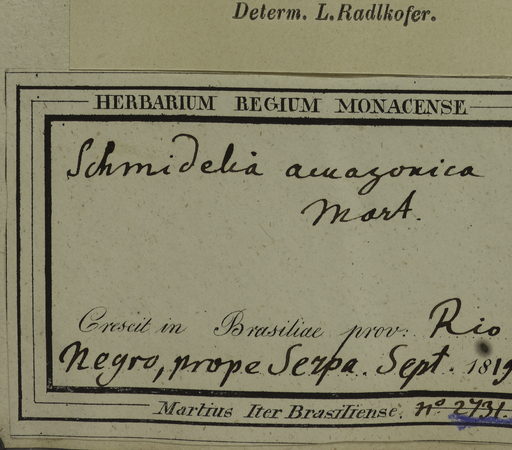 Determ. L. Radlkofer.
HERBARIUM REGIUM MONACENSE
Schmidelia amazonica
Mart.
Crescit in Brasiliae prov. Rio
Negro, prope Serpa. Sept. 1819
Martius Iter Brasiliense. nº 2731.